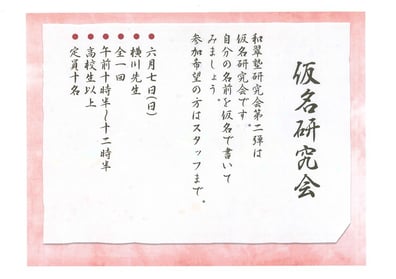 仮名研究会
和翠塾研究会第二弾は
仮名研究会です。
自分の名前を仮名で書いて
みましょう。
参加希望の方はスタッフまで。
●六月七日(日)
●横川先生
●全一回
●午前十時半～十二時半
●高校生以上
●定員十名